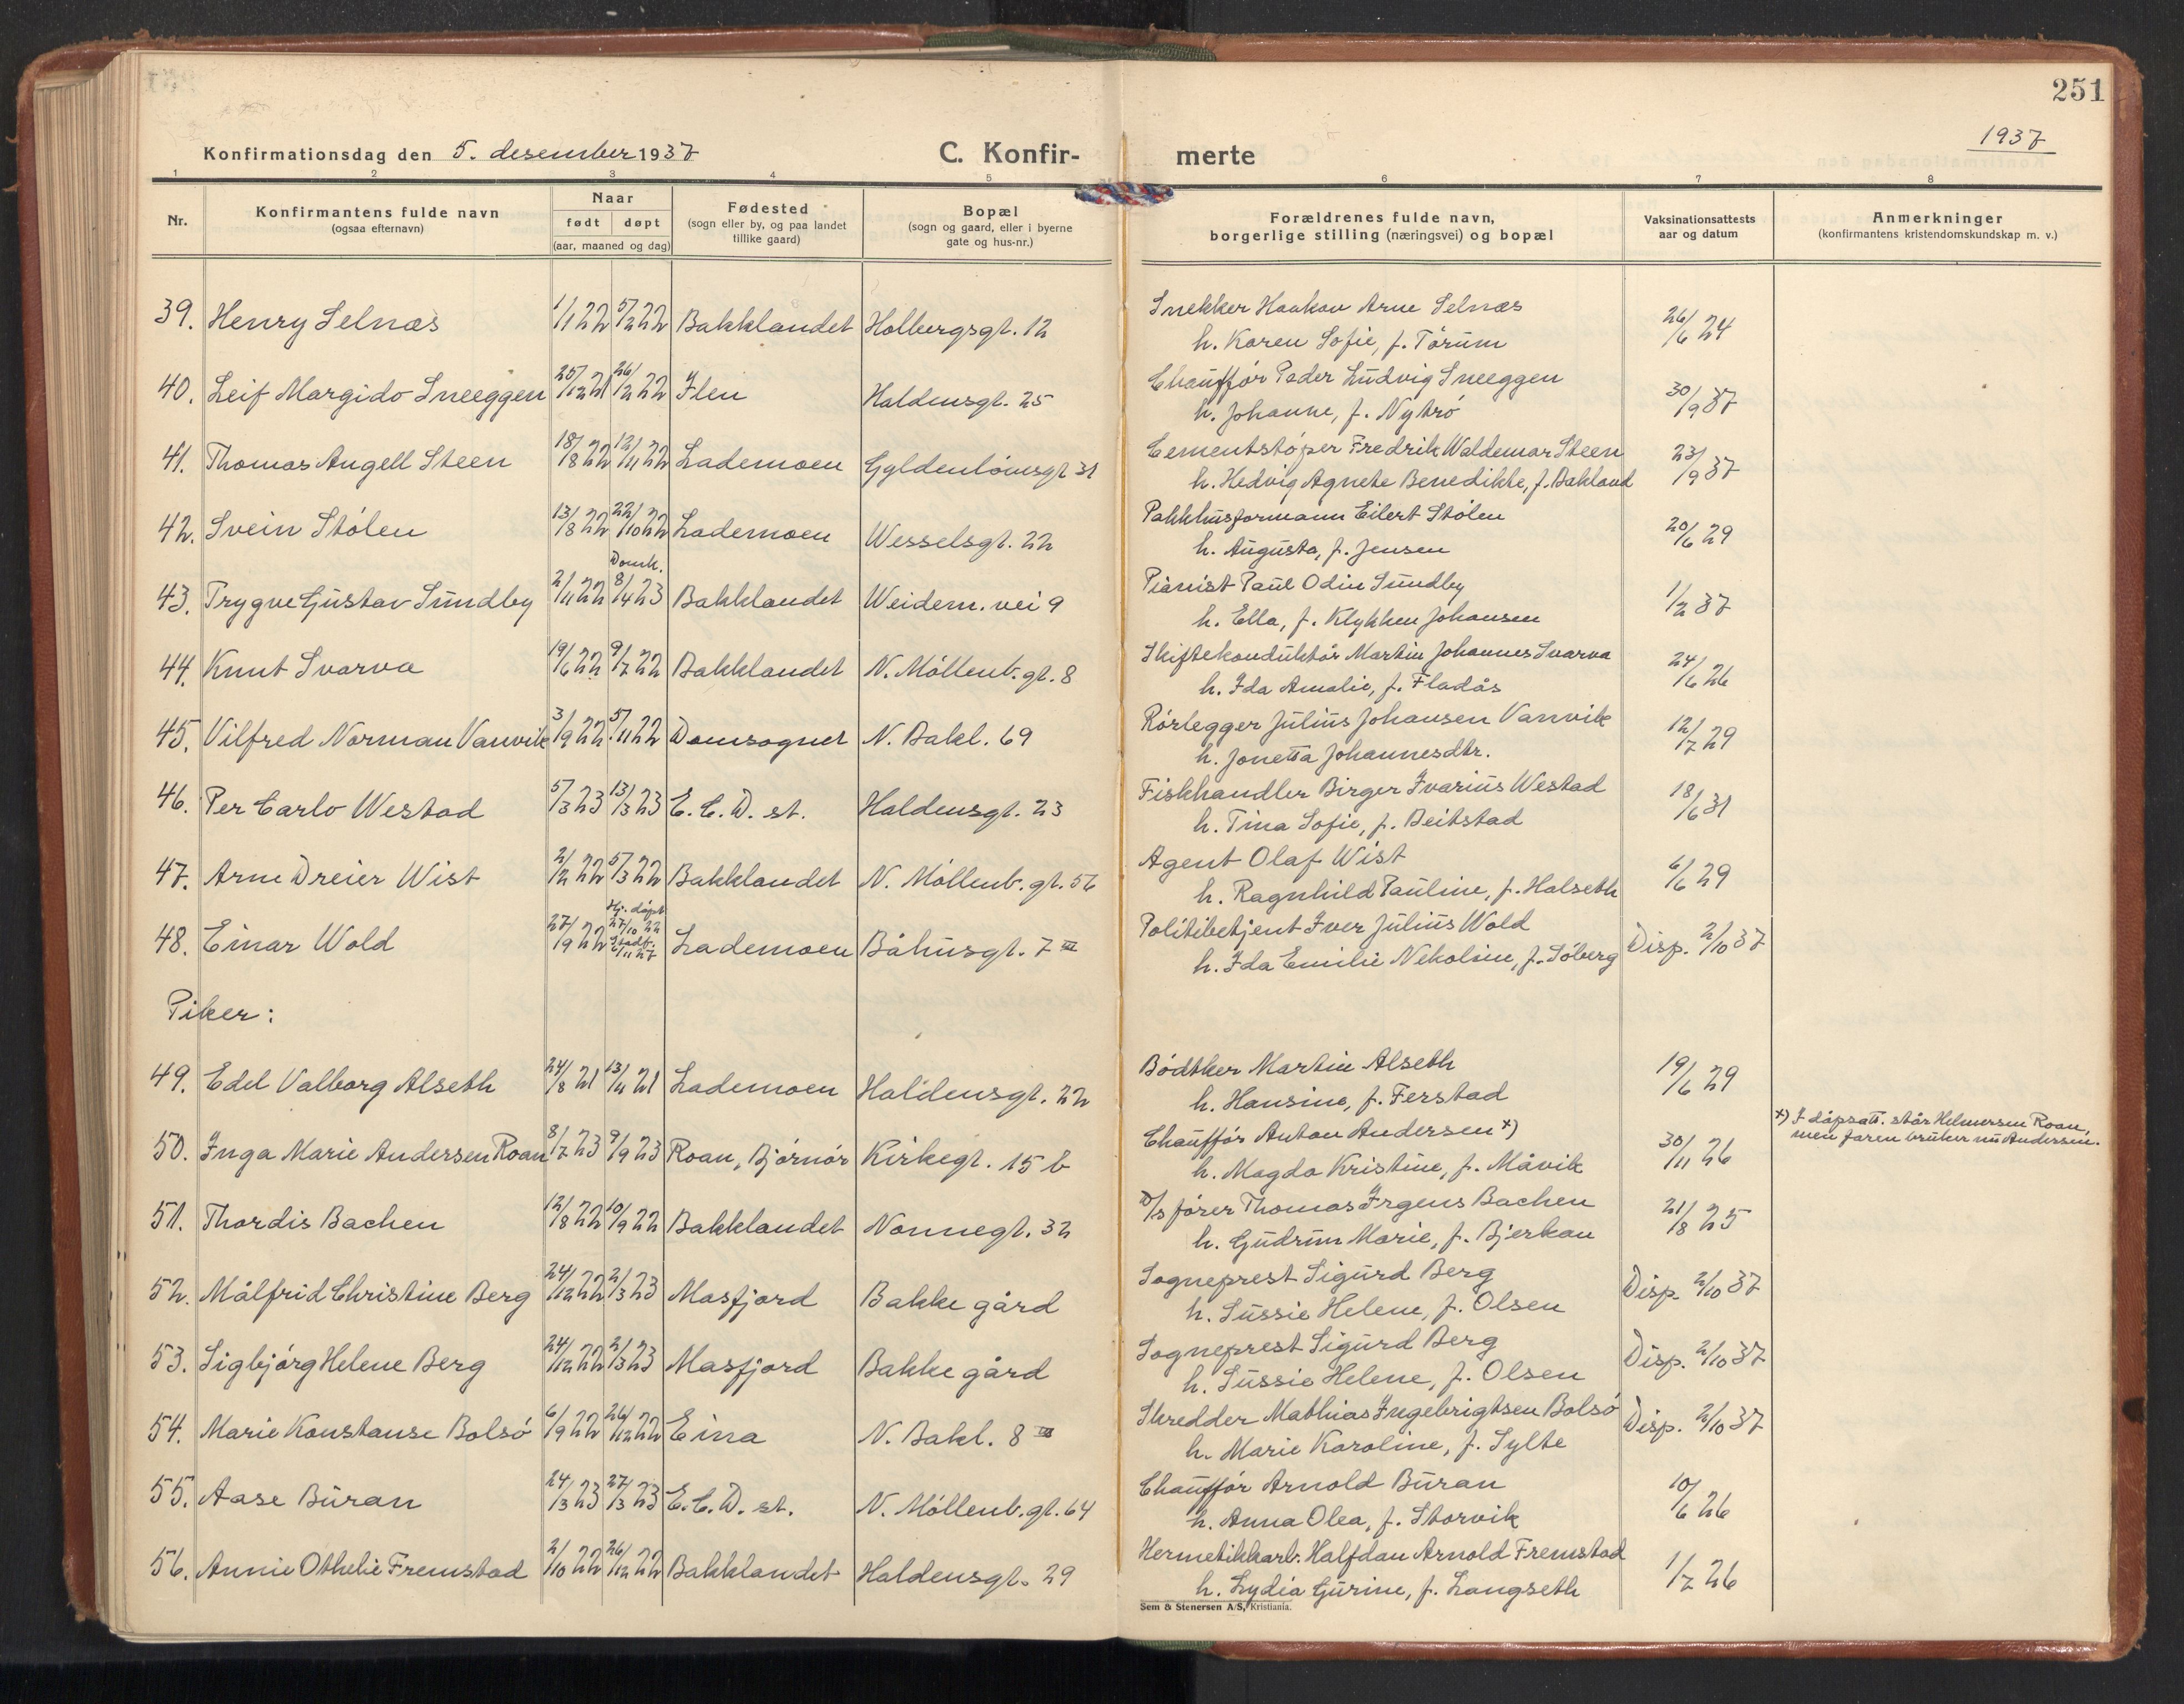 251
1937
Konfirmationsdag den 5. desember 1937
C. Konfir-
merte
1 2 3 4 5 6 7 8
Nr.
Konfirmantens fulde navn
(ogsaa efternavn)
Naar
født døpt
(aar, maaned og dag)
Fødested
(sogn eller by, og paa landet
tillike gaard)
Bopæl
(sogn og gaard, eller i byerne
gate og hus-nr.)
Forældrenes fulde navn,
borgerlige stilling (næringsvei) og bopæl
Vaksinationsattests
aar og datum
Anmerkninger
(konfirmantens kristendomskundskap m. v.)
39. Henry Selnæs 1/1 22 5/2 22 Bakklandet Holbergsgt. 12 Snekker Haakon Arne Selnæs 26/6 24
h. Karen Sofie, f. Tørum
40. Leif Margido Sneeggen 25/12 21 26/2 22 Ilen Haldensgt. 25 Chauffør Peder Ludvig Sneeggen 30/9 37
h. Johanne, f. Nytrø
41. Thomas Angell Steen 18/8 22 12/11 22 Lademoen Gyldenløvesgt 31 Cementstøper Fredrik Waldemar Steen 23/9 37
h. Hedvig Agnete Benedikte, f. Bakland
42. Svein Stølen 13/8 22 22/10 22 Lademoen Wesselsgt. 22 Pakkhusformann Eilert Stølen 20/6 29
h. Augusta, f. Jensen
Domk.
43. Trygve Gustav Sundby 2/11 22 8/4 23 Bakklandet Weidem. vei 9 Pianist Paul Odin Sundby 1/2 37
h. Ella, f. Klykken Johansen
44. Knut Svarva 19/6 22 9/7 22 Bakklandet N. Møllenb. gt. 8 Skiftekonduktør Martin Johannes Svarva 24/6 26
h. Ida Amalie, f. Fladås
45. Vilfred Norman Vanvik 3/9 22 5/11 22 Domsognet N. Bakl. 69 Rørlegger Julius Johansen Vanvik 12/7 29
h. Jonetta Johannesdtr.
46. Per Carlo Westad 5/3 23 13/3 23 E. C. D. st. Haldensgt. 23 Fiskhandler Birger Ivarius Westad 18/6 31
h. Tina Sofie, f. Beitstad
47. Arne Dreier Wist 2/2 22 5/3 22 Bakklandet N. Møllenb. gt. 56 Agent Olaf Wist 6/6 29
h. Ragnhild Pauline, f. Halseth
Hj. døpt
27/10 22
48. Einar Wold 27/9 22 Lademoen Båhusgt. 7 III Politibetjent Iver Julius Wold Disp. 2/10 37
h. Ida Emilie Nekoline, f. Søberg
Piker:
49. Edel Valborg Alseth 24/8 21 13/11 21 Lademoen Haldensgt. 22 Bødtker Martin Alseth 19/6 29
h. Hansine, f. Ferstad
50. Inga Marie Andersen Roan 8/7 23 9/9 23 Roan, Bjørnør Kirkegt. 15 b Chauffør Anton Andersen x) 30/11 26 x) I dåpsatt. står Helmersen Roan,
men faren bruker nu Andersen.
h. Magda Kristine, f. Måvik
51. Thordis Bachen 12/8 22 10/9 22 Bakklandet Nonnegt. 32 D/S fører Thomas Irgens Bachen 21/8 25
h. Gudrun Marie, f. Bjerkan
52. Målfrid Christine Berg 24/12 22 2/3 23 Masfjord Bakke gård Sogneprest Sigurd Berg Disp. 2/10 37
h. Sussie Helene, f. Olsen
53. Sigbjørg Helene Berg 24/12 22 2/3 23 Masfjord Bakke gård Sogneprest Sigurd Berg Disp. 2/10 37
h. Sussie Helene, f. Olsen
54. Marie Konstanse Bolsø 6/9 22 26/12 22 Eina N. Bakl. 8 III Skredder Mathias Ingebrigtsen Bolsø Disp. 2/10 37
h. Marie Karoline, f. Sylte
55. Aase Buran 24/3 23 27/3 23 E. C. D. st. N. Møllenb. gt. 64 Chauffør Arnold Buran 10/6 26
h. Anna Olea, f. Storvik
56. Annie Othelie Fremstad 2/10 22 26/12 22 Bakklandet Haldensgt. 29 Hermetikkarb. Halfdan Arnold Fremstad 1/7 26
h. Lydia Gurine, f. Langseth
Sem & Stenersen A/S, Kristiania.